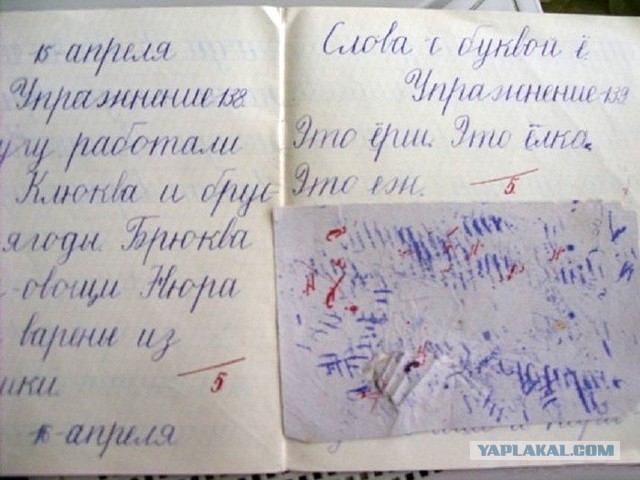 апреля
Упражнение 138.
угу работали
Клюква и брус-
ягоды. Брюква
-овощи Нюра
из
ики.
5
апреля
Слова с буквой ё.
Упражнение 139
Это ёрш. Это ёлка.
Это еж.
5
YAPLAKAL.COM